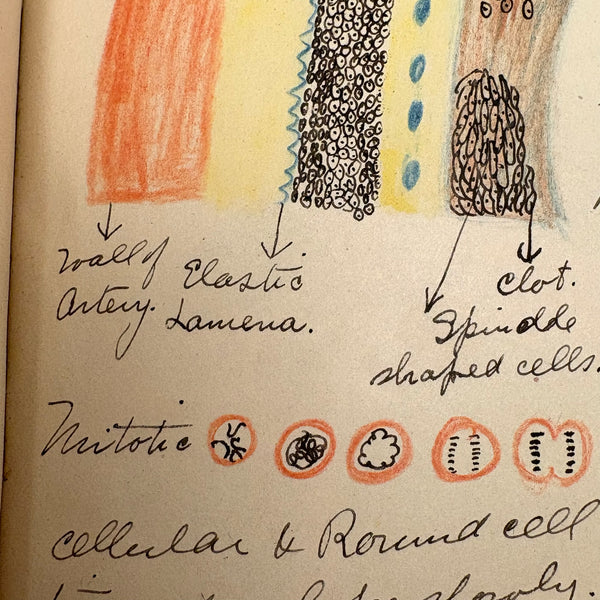 wall of
Artery.
Elastic
Lamena.
clot.
Spindle
shaped cells.
Mitotic
cellular & Round cell
slowly.